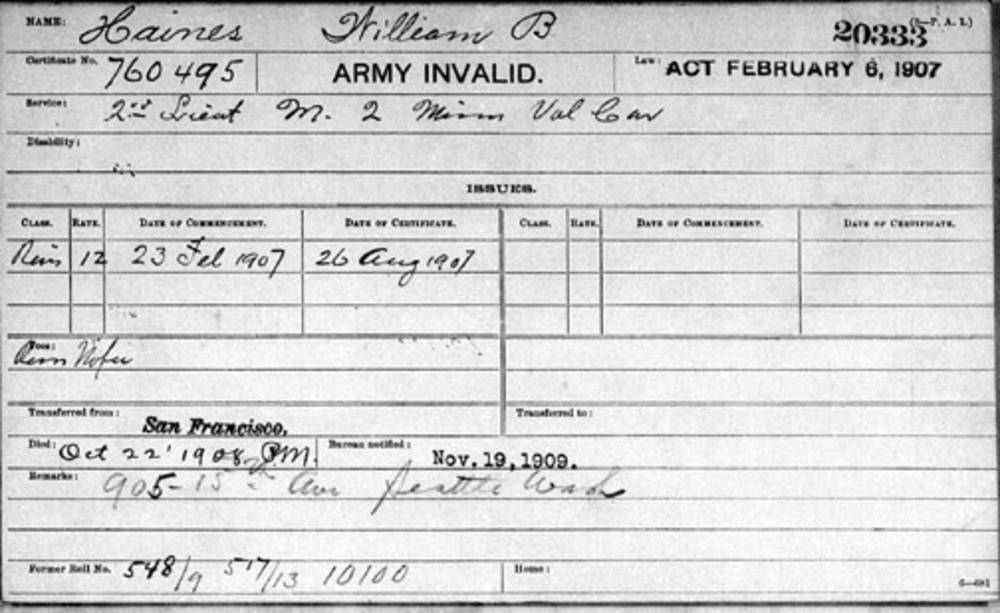 NAME: Haines William B 20333 (3-P. A. I.)
Certificate No. 760495 ARMY INVALID. Law: ACT FEBRUARY 6, 1907
Service: 2nd Lieut M. 2 Minn Vol Cav
Disability:
ISSUES.
CLASS. RATE. DATE OF COMMENCEMENT. DATE OF CERTIFICATE. CLASS. RATE. DATE OF COMMENCEMENT. DATE OF CERTIFICATE.
12 23 Feb 1907 26 Aug 1907
Fees:
Transferred from: San Francisco. Transferred to:
Died: Oct 22' 1908 P.M. Bureau notified: Nov. 19, 1909.
Remarks: 905-15th Ave Seattle Wash
Former Roll No. 548/9 517/13 10100 Home: